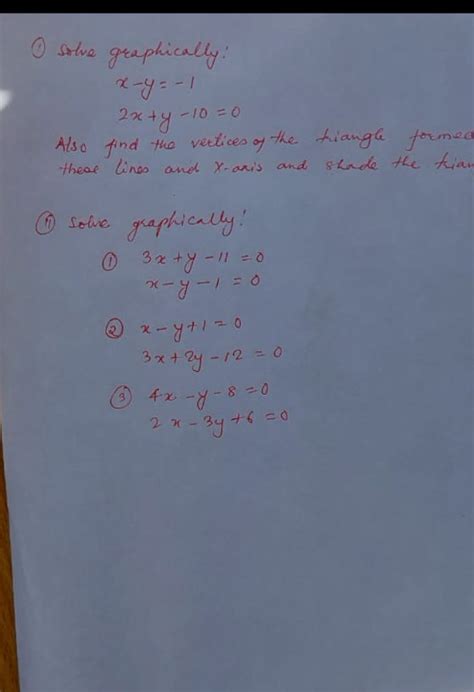 ① Solve graphically!
x-y=-1
2x+y-10=0
Also find the vertices of the triangle formed
these lines and X-axis and shade the
② Solve graphically!
① 3x+y-11=0
x-y-1=0
② x-y+1=0
3x+2y-12=0
③ 4x-y-8=0
2x-3y+6=0